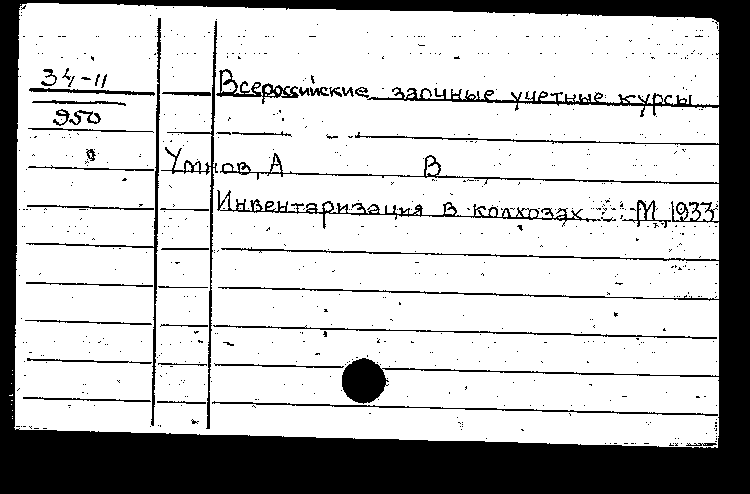 34-11
Всероссийские заочные учетные курсы
950
Умнов, А В
Инвентаризация в колхозах М, 1933